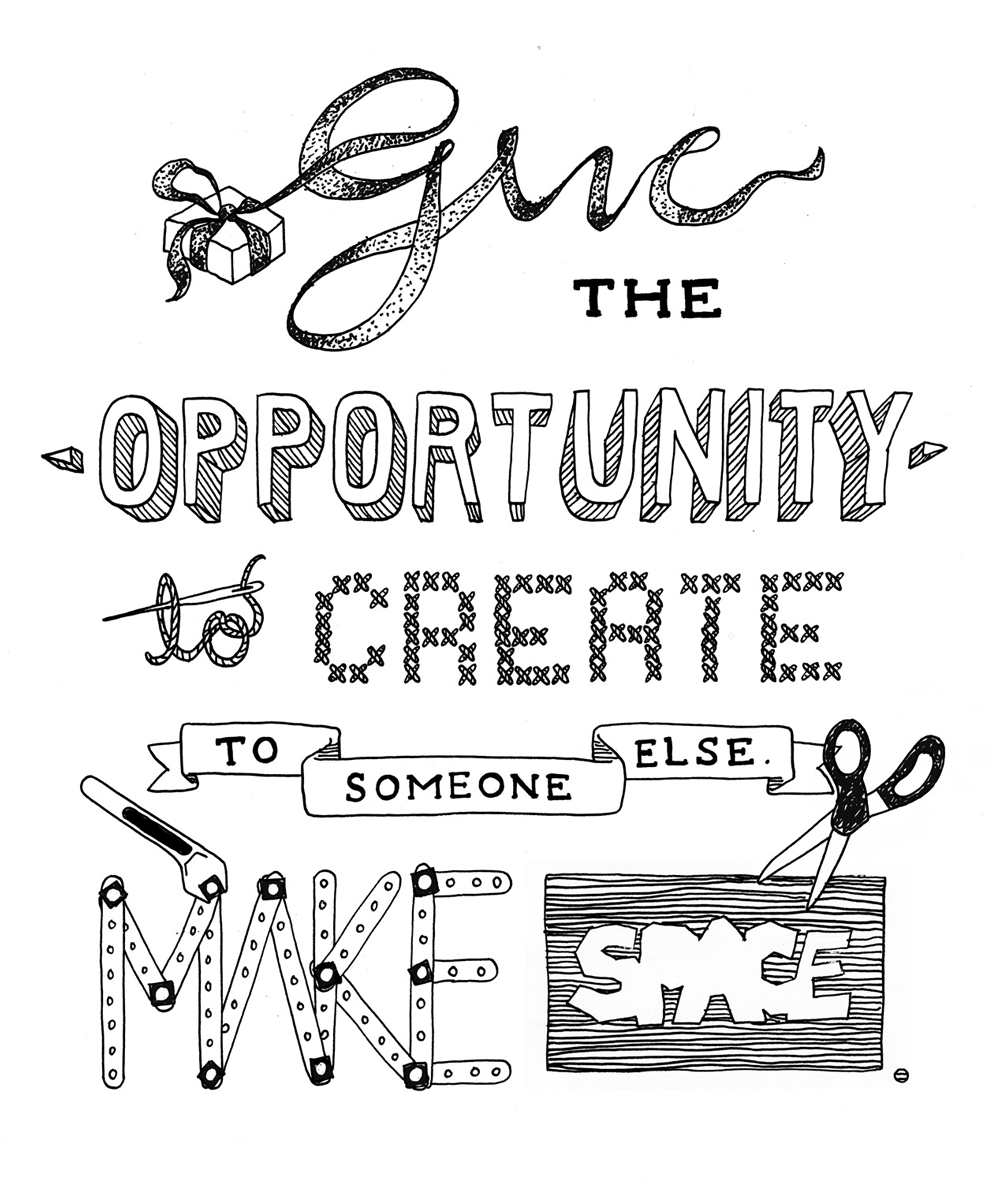 Give
THE
OPPORTUNITY
to CREATE
TO SOMEONE ELSE.
MAKE SPACE.